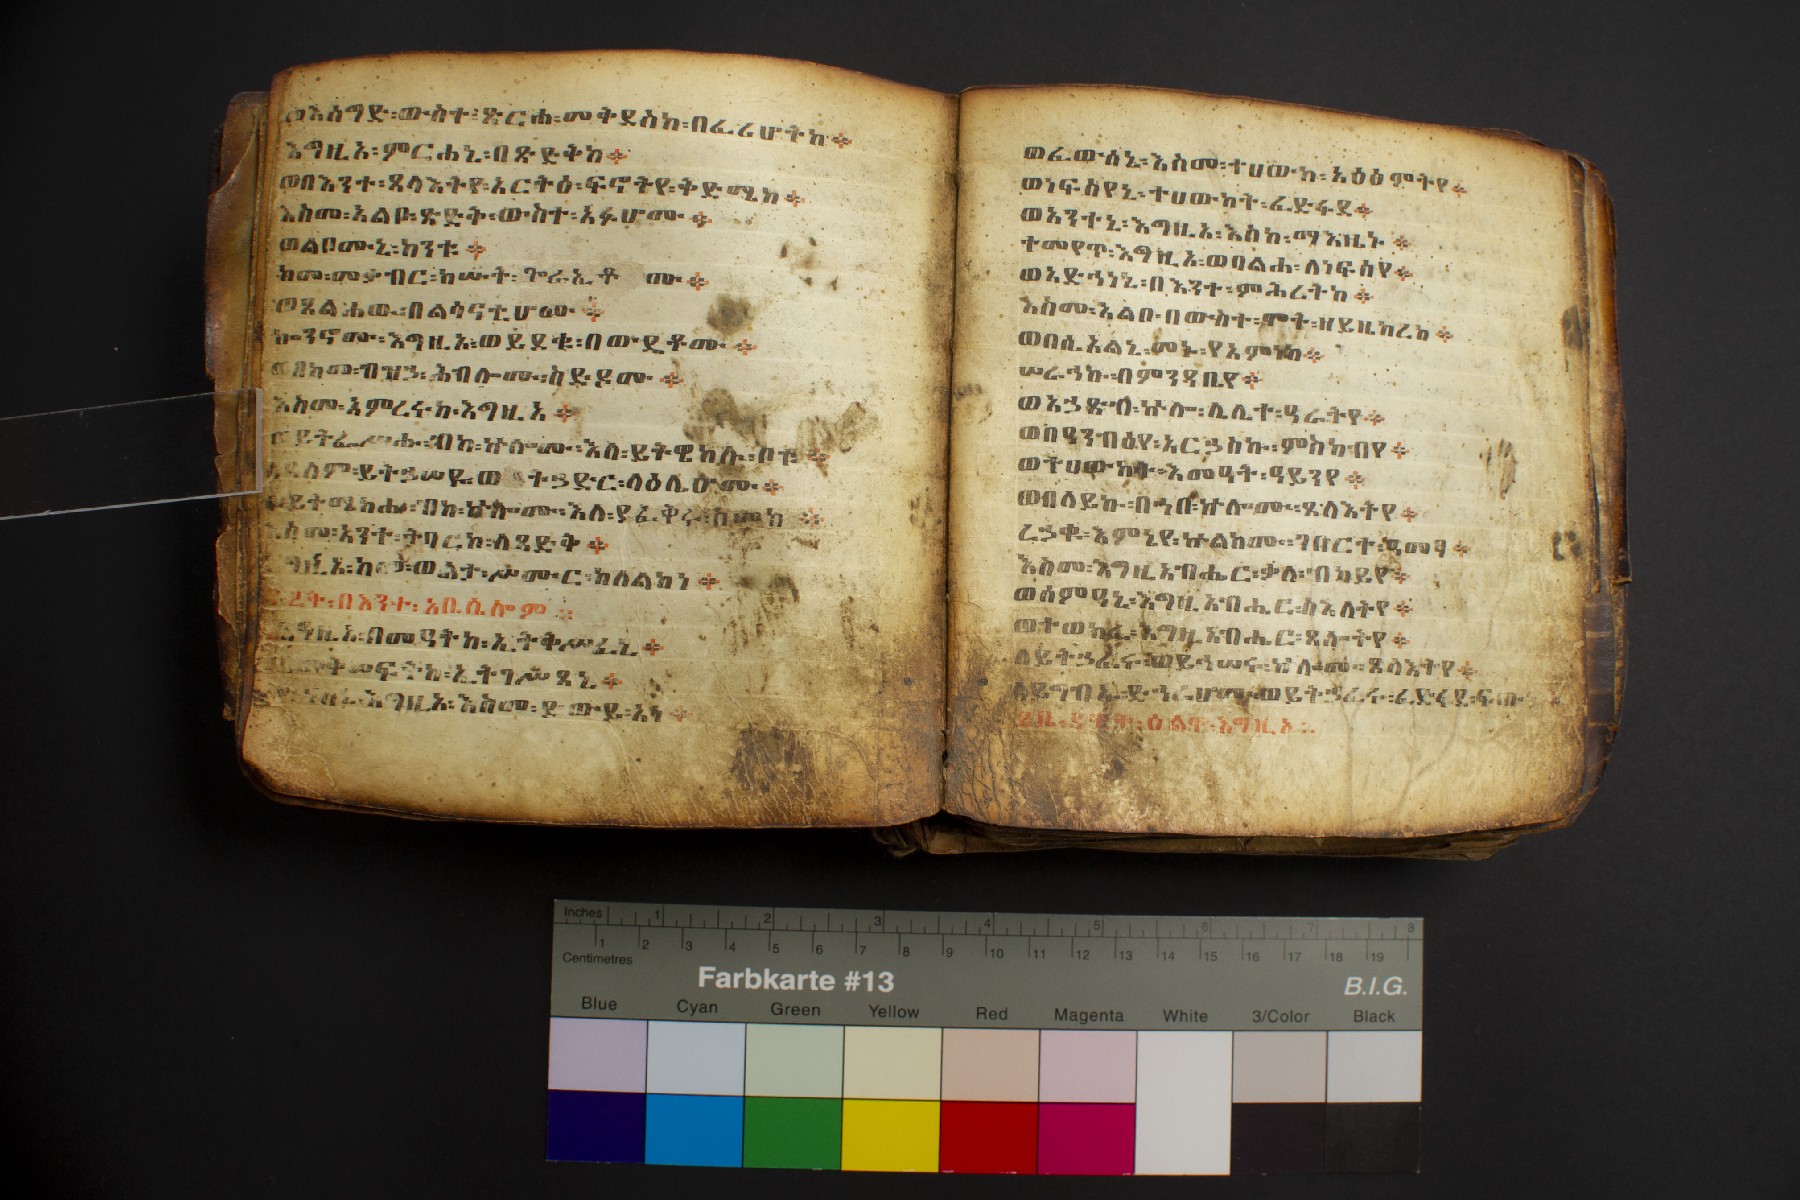 ወእሰግድ፡ውስተ፡ጽርሐ፡መቅደስከ፡በፈሪሆትከ፨
እግዚኦ፡ምርሐኒ፡በጽድቅከ፨
ወበእንተ፡ጸላእትየ፡አርትዕ፡ፍኖትየ፡ቅድሜከ፨
እስመ፡አልቦ፡ጽድቅ፡ውስተ፡አፉሆሙ፨
ወልቦሙኒ፡ከንቱ፨
ከመ፡መቃብር፡ክሡት፡ጐራኢቶሙ፨
ወጸልሐዉ፡በልሳናቲሆሙ፨
ኰንኖሙ፡እግዚኦ፡ወይደቁ፡በውዴቶሙ፨
ወበከመ፡ብዝኃ፡ሕብሎሙ፡ስድዶሙ፨
እስመ፡አምረሩከ፡እግዚኦ፨
ወይትፌሥሑ፡ብከ፡ኵሎሙ፡እለ፡ይትዌከሉ፡ቦቱ፨
ለዓለም፡ይትኃሠዩ፡ወተኃድር፡ላዕሌሆሙ፨
ወይትሜክሑ፡ብከ፡ኵሎሙ፡እለ፡ያፈቅሩ፡ስመከ፨
እስመ፡አንተ፡ትባርኮ፡ለጻድቅ፨
እግዚኦ፡ከመ፡ወልታ፡ሥሙር፡ከለልከነ፨
በእንተ፡አቤሴሎም
እግዚኦ፡በመዓትከ፡ኢትቅሥፈኒ፨
ወበመቅሠፍትከ፡ኢትገሥጸኒ፨
ተሣሀለኒ፡እግዚኦ፡እስመ፡ድውይ፡አነ፨
ወፈውሰኒ፡እስመ፡ተሀውከ፡አዕፅምትየ፨
ወነፍስየኒ፡ተሀውከት፡ፈድፋደ፨
ወአንተኒ፡እግዚኦ፡እስከ፡ማእዜኑ፨
ተመየጥ፡እግዚኦ፡ወባልሐ፡ለነፍስየ፨
ወአድኅነኒ፡በእንተ፡ምሕረትከ፨
እስመ፡አልቦ፡በውስተ፡ሞት፡ዘይዜከረከ፨
ወበሲኦልኒ፡መኑ፡የአምነከ፨
ሠራኅኩ፡በምንዳቤየ፨
ወአኃጽብ፡ኵሎ፡ሌሊተ፡ዓራትየ፨
ወበዓንብዕየ፡አርኃስኩ፡ምስካብየ፨
ወተሀውከት፡እመዓት፡ዓይንየ፨
ወበለይኩ፡በኀበ፡ኵሎሙ፡ጸላእትየ፨
ረኃቁ፡እምኔየ፡ኵልክሙ፡ገበርተ፡ዓመፃ፨
እስመ፡እግዚአብሔር፡ቃለ፡ብካይየ፨
ወሰምዓኒ፡እግዚአብሔር፡ስእለትየ፨
ወተወክፈ፡እግዚአብሔር፡ጸሎትየ፨
ለይትኃፈሩ፡ወይኅሠሩ፡ኵሎሙ፡ጸላእትየ፨
ለይግብኡ፡ድኅሬሆሙ፡ወይትኃፈሩ፡ፈድፋደ፡ፍጡነ፨
Inches 1 2 3 4 5 6 7 8
1 2 3 4 5 6 7 8 9 10 11 12 13 14 15 16 17 18 19
Centimetres
Farbkarte #13
B.I.G.
Blue Cyan Green Yellow Red Magenta White 3/Color Black